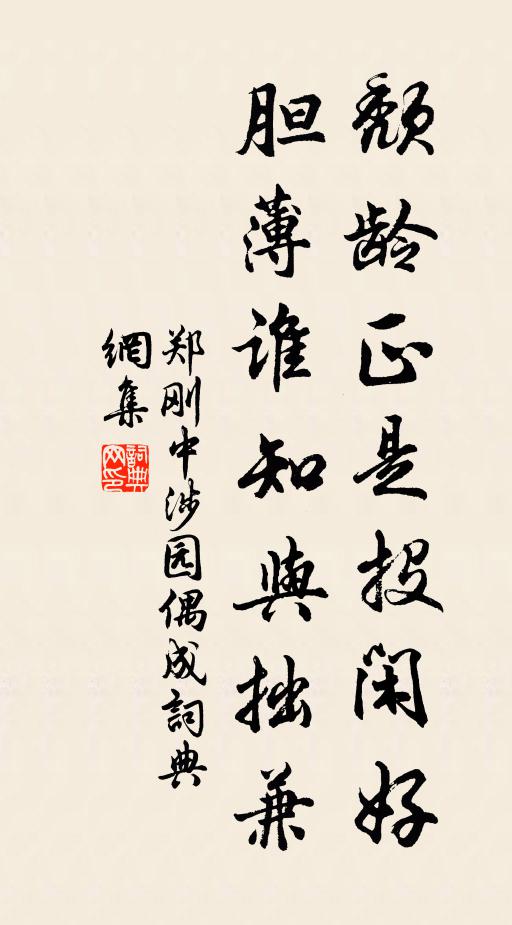 颓龄正是投闲好
胆薄谁知與拙兼
郑刚中涉园偶成詞典
網集
詞典
网印